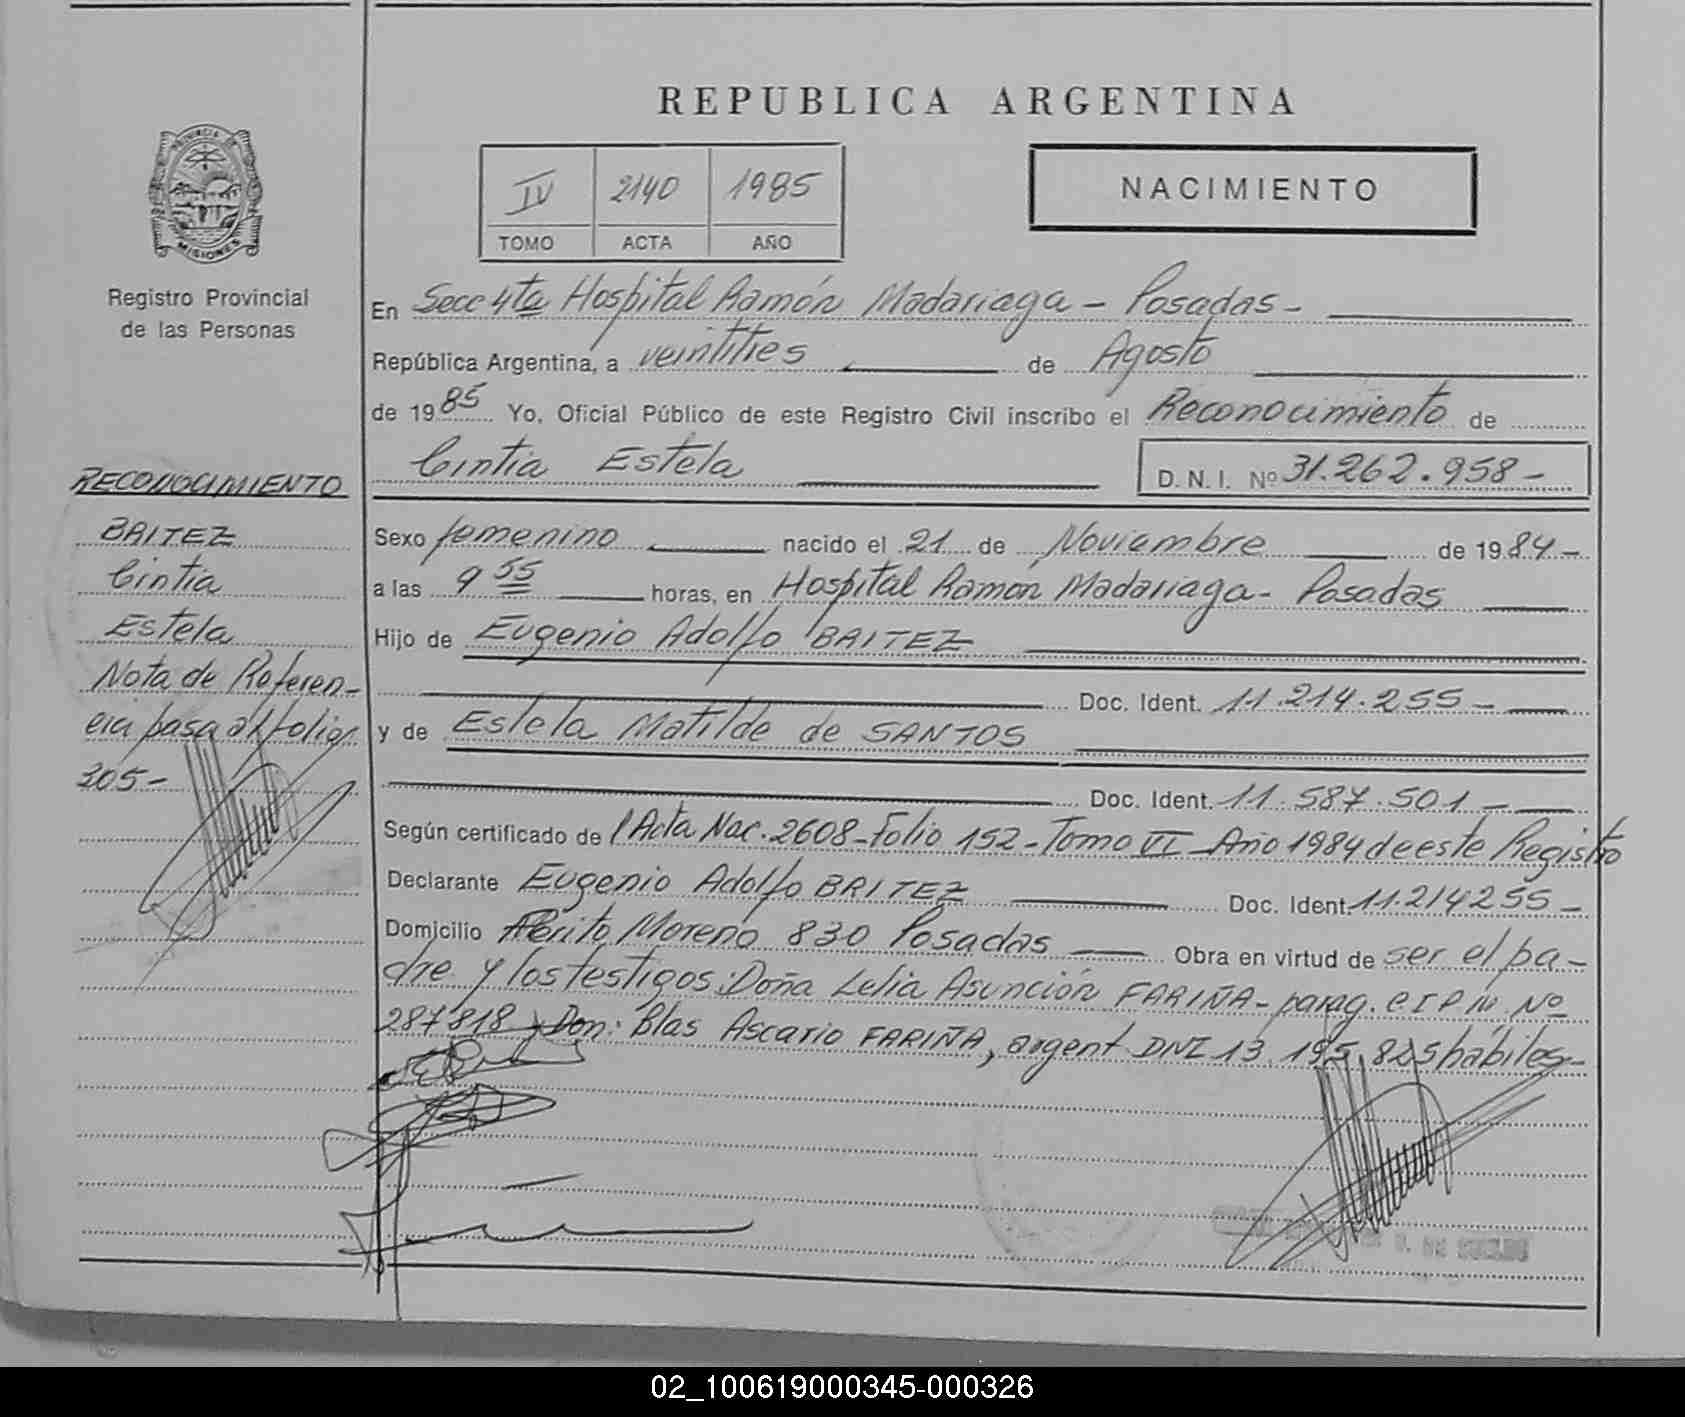 REPUBLICA ARGENTINA
PROVINCIA DE
MISIONES
IV 2140 1985
TOMO ACTA AÑO
NACIMIENTO
Registro Provincial
de las Personas
En Secc 4ta Hospital Ramón Madariaga - Posadas -
República Argentina, a veintitres de Agosto
de 1985 Yo, Oficial Público de este Registro Civil inscribo el Reconocimiento de
Cintia Estela D. N. I. Nº 31.262.958 -
RECONOCIMIENTO
BRITEZ
Cintia
Estela
Nota de Referen-
cia pasa al folio
305 -
Sexo femenino nacido el 21 de Noviembre de 1984 -
a las 9 55 horas, en Hospital Ramón Madariaga - Posadas
Hijo de Eugenio Adolfo BRITEZ
Doc. Ident. 11.214.255 -
y de Estela Matilde de SANTOS
Doc. Ident. 11.587.501 -
Según certificado de l'Acta Nac. 2608 - Folio 152 - Tomo VI - Año 1984 de este Registro
Declarante Eugenio Adolfo BRITEZ Doc. Ident. 11.214255 -
Domicilio Perito Moreno 830 Posadas Obra en virtud de ser el pa-
dre y los testigos: Doña Lelia Asunción FARIÑA - parag. CIP Nº
287818 y Don: Blas Ascario FARIÑA, argent DNI 13.195.825 hábiles -
02_100619000345-000326